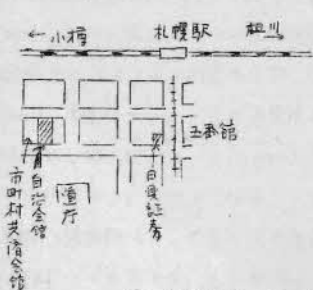 ←小樽
札幌駅
旭川
五番館
自治会館
道庁
日興証券
市町村共済会館